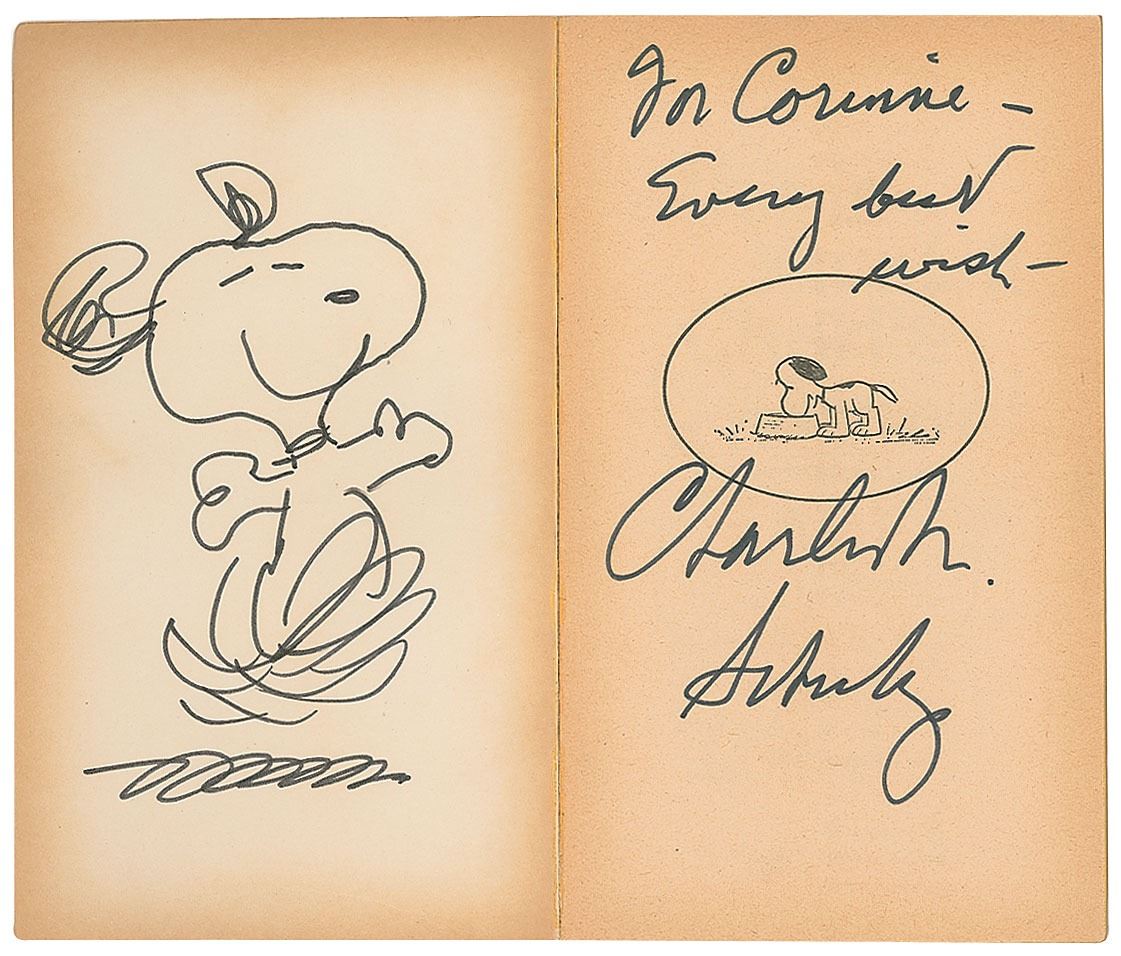 For Corinne –
Every best
wish –
Charles M.
Schulz